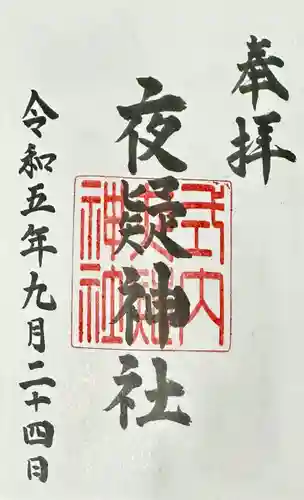 奉拝
夜疑神社
式内
夜疑神社
令和五年九月二十四日